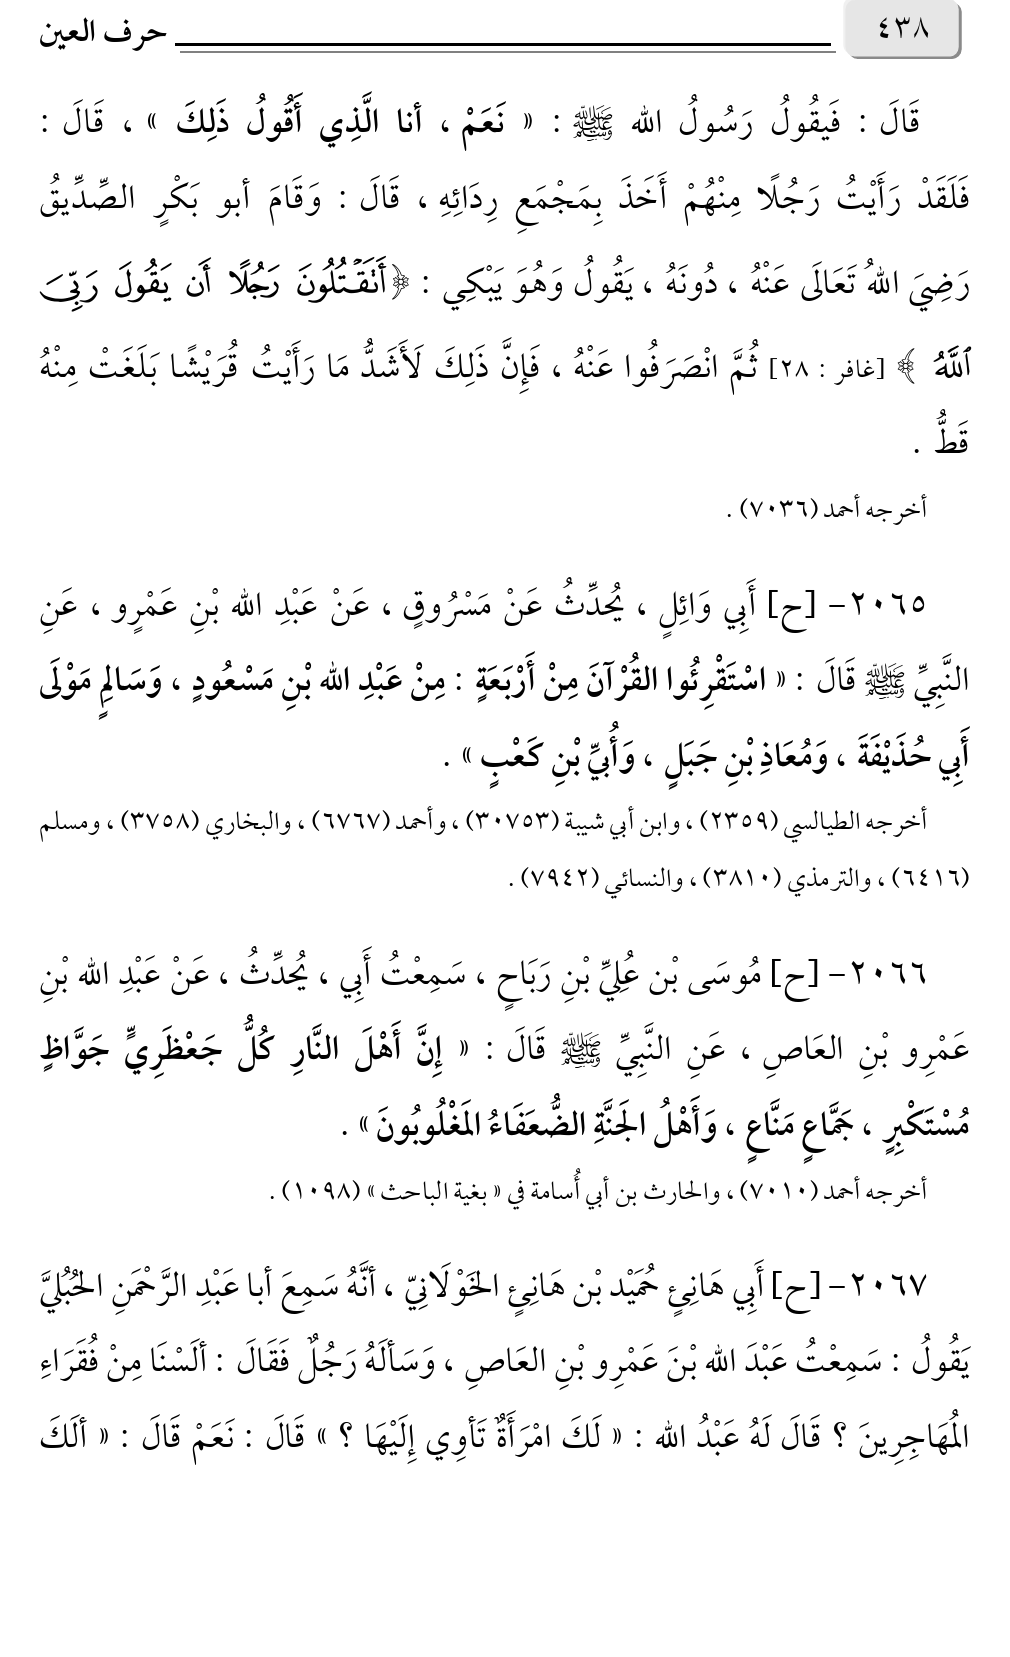 ٤٣٨
حرف العين
قَالَ : فَيَقُولُ رَسُولُ الله ﷺ : « نَعَمْ ، أنا الَّذِي أَقُولُ ذَلِكَ » ، قَالَ :
فَلَقَدْ رَأَيْتُ رَجُلًا مِنْهُمْ أَخَذَ بِمَجْمَعِ رِدَائِهِ ، قَالَ : وَقَامَ أبو بَكْرٍ الصِّدِّيقُ
رَضِيَ اللهُ تَعَالَى عَنْهُ ، دُونَهُ ، يَقُولُ وَهُوَ يَبْكِي : ﴿أَتَقۡتُلُونَ رَجُلًا أَن يَقُولَ رَبِّيَ
ٱللَّهُ ﴾ [غافر : ٢٨] ثُمَّ انْصَرَفُوا عَنْهُ ، فَإِنَّ ذَلِكَ لَأَشَدُّ مَا رَأَيْتُ قُرَيْشًا بَلَغَتْ مِنْهُ
قَطُّ .
أخرجه أحمد (٧٠٣٦) .
٢٠٦٥- [ح] أَبِي وَائِلٍ ، يُحَدِّثُ عَنْ مَسْرُوقٍ ، عَنْ عَبْدِ الله بْنِ عَمْرٍو ، عَنِ
النَّبِيِّ ﷺ قَالَ : « اسْتَقْرِئُوا القُرْآنَ مِنْ أَرْبَعَةٍ : مِنْ عَبْدِ الله بْنِ مَسْعُودٍ ، وَسَالِمٍ مَوْلَى
أَبِي حُذَيْفَةَ ، وَمُعَاذِ بْنِ جَبَلٍ ، وَأُبَيِّ بْنِ كَعْبٍ » .
أخرجه الطيالسي (٢٣٥٩) ، وابن أبي شيبة (٣٠٧٥٣) ، وأحمد (٦٧٦٧) ، والبخاري (٣٧٥٨) ، ومسلم
(٦٤١٦) ، والترمذي (٣٨١٠) ، والنسائي (٧٩٤٢) .
٢٠٦٦- [ح] مُوسَى بْن عُلِيِّ بْنِ رَبَاحٍ ، سَمِعْتُ أَبِي ، يُحَدِّثُ ، عَنْ عَبْدِ الله بْنِ
عَمْرِو بْنِ العَاصِ ، عَنِ النَّبِيِّ ﷺ قَالَ : « إِنَّ أَهْلَ النَّارِ كُلُّ جَعْظَرِيٍّ جَوَّاظٍ
مُسْتَكْبِرٍ ، جَمَّاعٍ مَنَّاعٍ ، وَأَهْلُ الجَنَّةِ الضُّعَفَاءُ المَغْلُوبُونَ » .
أخرجه أحمد (٧٠١٠) ، والحارث بن أبي أُسامة في « بغية الباحث » (١٠٩٨) .
٢٠٦٧- [ح] أَبِي هَانِئٍ حُمَيْد بْن هَانِئٍ الخَوْلَانِيّ ، أنَّهُ سَمِعَ أبا عَبْدِ الرَّحْمَنِ الحُبُلِيَّ
يَقُولُ : سَمِعْتُ عَبْدَ الله بْنَ عَمْرِو بْنِ العَاصِ ، وَسَألَهُ رَجُلٌ فَقَالَ : ألَسْنَا مِنْ فُقَرَاءِ
المُهَاجِرِينَ ؟ قَالَ لَهُ عَبْدُ الله : « لَكَ امْرَأَةٌ تَأوِي إِلَيْهَا ؟ » قَالَ : نَعَمْ قَالَ : « ألَكَ